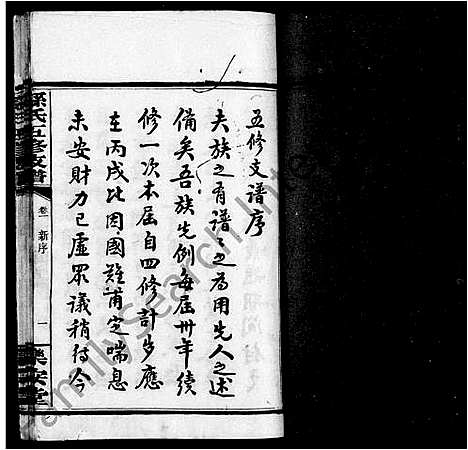 五修支譜序
夫族之有譜譜之為用先人之述
備矣吾族先例每屆卅年續
修一次本屆自四修計步應
在丙戌比因國難甫定喘息
未安財力已虛眾議稍待今
孫氏五修支譜
卷一 新序
一
樂安堂
FamilySearch Int